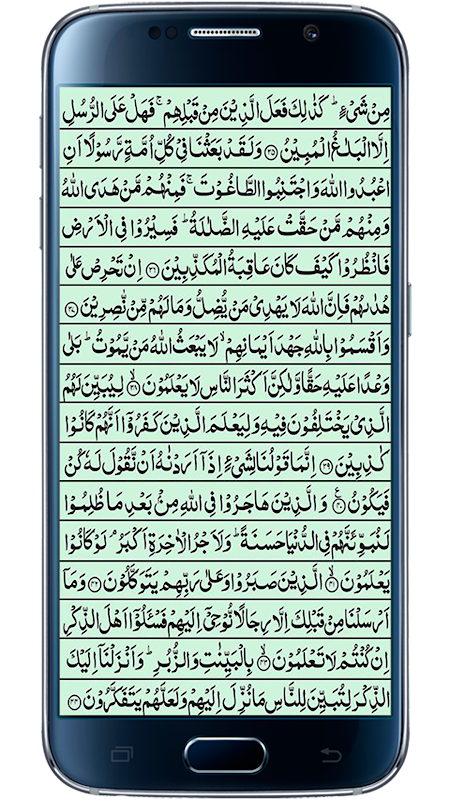 مِنْ شَیْءٍ ؕ کَذٰلِکَ فَعَلَ الَّذِیْنَ مِنْ قَبْلِهِمْ ۚ فَهَلْ عَلَی الرُّسُلِ
اِلَّا الْبَلٰغُ الْمُبِیْنُ ۝۳۵ وَلَقَدْ بَعَثْنَا فِیْ کُلِّ اُمَّةٍ رَّسُوْلًا اَنِ
اعْبُدُوا اللّٰهَ وَاجْتَنِبُوا الطَّاغُوْتَ ۚ فَمِنْهُمْ مَّنْ هَدَی اللّٰهُ
وَمِنْهُمْ مَّنْ حَقَّتْ عَلَیْهِ الضَّلٰلَةُ ؕ فَسِیْرُوْا فِی الْاَرْضِ
فَانْظُرُوْا کَیْفَ کَانَ عَاقِبَةُ الْمُکَذِّبِیْنَ ۝۳۶ اِنْ تَحْرِصْ عَلٰی
هُدٰىهُمْ فَاِنَّ اللّٰهَ لَا یَهْدِیْ مَنْ یُّضِلُّ وَمَا لَهُمْ مِّنْ نّٰصِرِیْنَ ۝۳۷
وَاَقْسَمُوْا بِاللّٰهِ جَهْدَ اَیْمَانِهِمْ ۙ لَا یَبْعَثُ اللّٰهُ مَنْ یَّمُوْتُ ؕ بَلٰی
وَعْدًا عَلَیْهِ حَقًّا وَّلٰکِنَّ اَکْثَرَ النَّاسِ لَا یَعْلَمُوْنَ ۝۳۸ لِیُبَیِّنَ لَهُمُ
الَّذِیْ یَخْتَلِفُوْنَ فِیْهِ وَلِیَعْلَمَ الَّذِیْنَ کَفَرُوْۤا اَنَّهُمْ کَانُوْا
کٰذِبِیْنَ ۝۳۹ اِنَّمَا قَوْلُنَا لِشَیْءٍ اِذَاۤ اَرَدْنٰهُ اَنْ نَّقُوْلَ لَهٗ کُنْ
فَیَکُوْنُ ۝۴۰ وَالَّذِیْنَ هَاجَرُوْا فِی اللّٰهِ مِنْۢ بَعْدِ مَا ظُلِمُوْا
لَنُبَوِّئَنَّهُمْ فِی الدُّنْیَا حَسَنَةً ؕ وَلَاَجْرُ الْاٰخِرَةِ اَکْبَرُ ۘ لَوْ کَانُوْا
یَعْلَمُوْنَ ۝۴۱ الَّذِیْنَ صَبَرُوْا وَعَلٰی رَبِّهِمْ یَتَوَکَّلُوْنَ ۝۴۲ وَمَاۤ
اَرْسَلْنَا مِنْ قَبْلِکَ اِلَّا رِجَالًا نُّوْحِیْۤ اِلَیْهِمْ فَسْـَٔلُوْۤا اَهْلَ الذِّکْرِ
اِنْ کُنْتُمْ لَا تَعْلَمُوْنَ ۝۴۳ بِالْبَیِّنٰتِ وَالزُّبُرِ ؕ وَاَنْزَلْنَاۤ اِلَیْکَ
الذِّکْرَ لِتُبَیِّنَ لِلنَّاسِ مَا نُزِّلَ اِلَیْهِمْ وَلَعَلَّهُمْ یَتَفَکَّرُوْنَ ۝۴۴